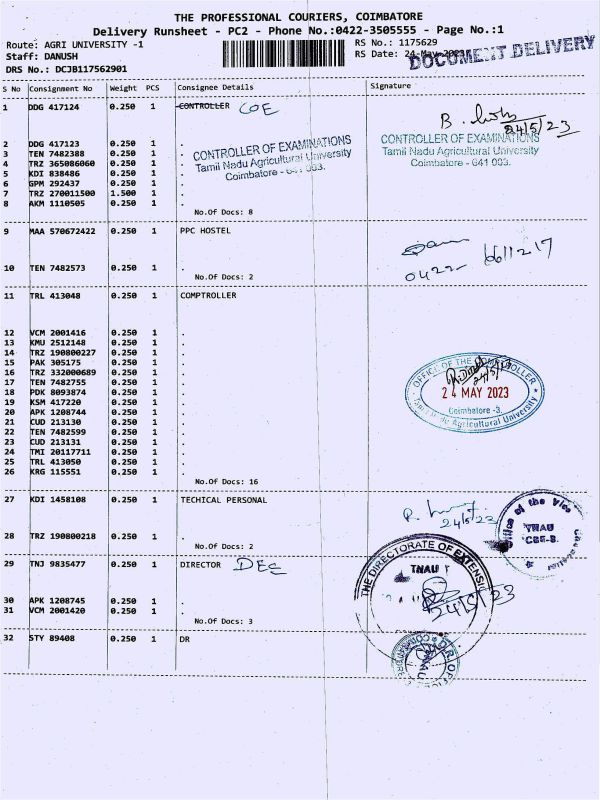 THE PROFESSIONAL COURIERS, COIMBATORE
Delivery Runsheet - PC2 - Phone No.:0422-3505555 - Page No.:1
Route: AGRI UNIVERSITY -1
RS No.: 1175629
Staff: DANUSH
RS Date: 24-May-2023
DOCUMENT DELIVERY
DRS No.: DCJB117562901
S No Consignment No Weight PCS Consignee Details Signature
1 DDG 417124 0.250 1 CONTROLLER COE
24/5/23
2 DDG 417123 0.250 1 .
3 TEN 7482388 0.250 1 .
4 TRZ 365086060 0.250 1 .
5 KDI 838486 0.250 1 .
6 GPM 292437 0.250 1 .
7 TRZ 270011500 1.500 1 .
8 AKM 1110505 0.250 1 .
CONTROLLER OF EXAMINATIONS
Tamil Nadu Agricultural University
Coimbatore - 641 003.
CONTROLLER OF EXAMINATIONS
Tamil Nadu Agricultural University
Coimbatore - 641 003.
No.Of Docs: 8
9 MAA 570672422 0.250 1 PPC HOSTEL
0422 6611217
10 TEN 7482573 0.250 1 .
No.Of Docs: 2
11 TRL 413048 0.250 1 COMPTROLLER
12 VCM 2001416 0.250 1 .
13 KMU 2512148 0.250 1 .
14 TRZ 190800227 0.250 1 .
15 PAK 305175 0.250 1 .
16 TRZ 332000689 0.250 1 .
17 TEN 7482755 0.250 1 .
18 PDK 8093874 0.250 1 .
19 KSM 417220 0.250 1 .
20 APK 1208744 0.250 1 .
21 CUD 213130 0.250 1 .
22 TEN 7482599 0.250 1 .
23 CUD 213131 0.250 1 .
24 TMI 20117711 0.250 1 .
25 TRL 413050 0.250 1 .
26 KRG 115551 0.250 1 .
OFFICE OF THE COMPTROLLER
24/5/23
24 MAY 2023
Coimbatore -3.
Tamil Nadu Agricultural University
No.Of Docs: 16
27 KDI 1458108 0.250 1 TECHICAL PERSONAL
24/5/23
Office of the Vice Chancellor
TNAU
CBE-3.
28 TRZ 190800218 0.250 1 .
No.Of Docs: 2
29 TNJ 9835477 0.250 1 DIRECTOR DEE
THE DIRECTORATE OF EXTENSION
TNAU
24/5/23
30 APK 1208745 0.250 1 .
31 VCM 2001420 0.250 1 .
No.Of Docs: 3
32 STY 89408 0.250 1 DR